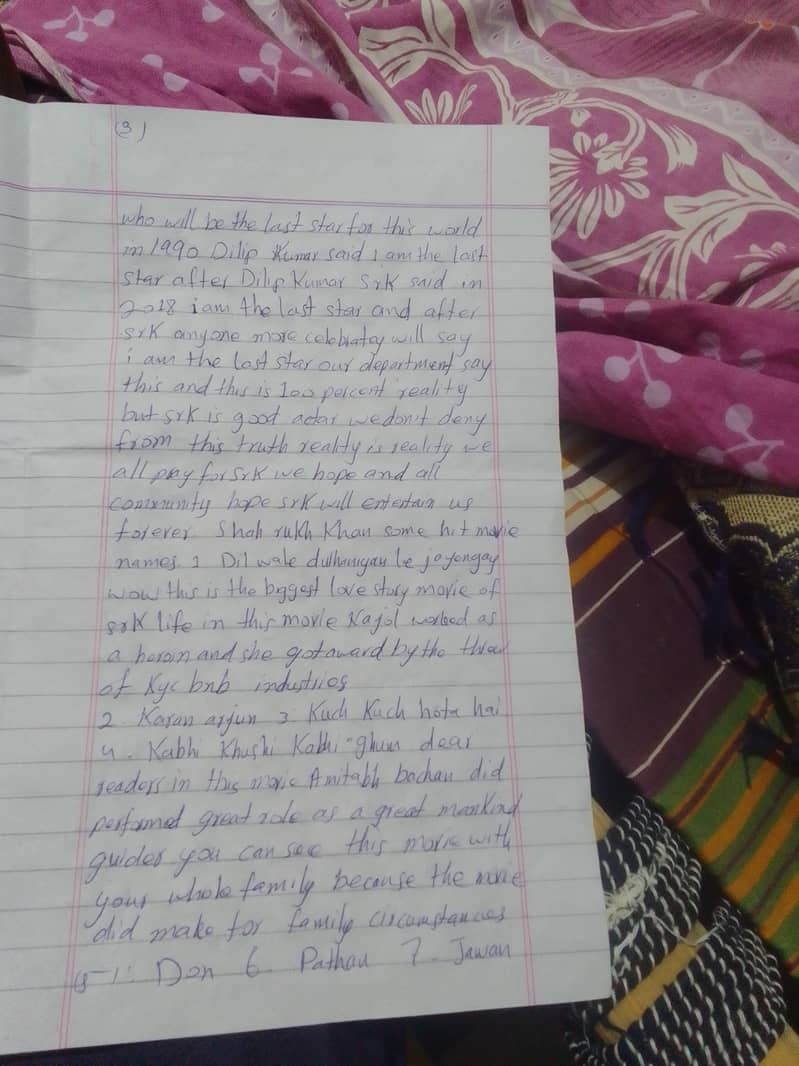 (3)
who will be the last star for this world
in 1990 Dilip Kumar said i am the last
star after Dilip Kumar SrK said in
2018 i am the last star and after
SrK anyone more celebratay will say
i am the last star our department say
this and this is 100 percent reality
but SrK is good actar we don't deny
from this truth reality is reality we
all pay for SrK we hope and all
community hope SrK will entertain us
forever. Shah rukh Khan some hit movie
names. 1 Dil wale dulhaniyau le jayengay
wow this is the biggest love story movie of
SrK life in this movie Kajol worked as
a heroin and she got award by the
of Kyc bnb industries
2. Karan arjun 3. Kuch Kuch hota hai
4. Kabhi Khushi Kabhi ghum dear
readers in this movie Amitabh bachan did
performed great role as a great mankind
guider you can see this movie with
your whole family because the movie
did make for family circumstances
5 Don 6. Pathau 7. Jawan